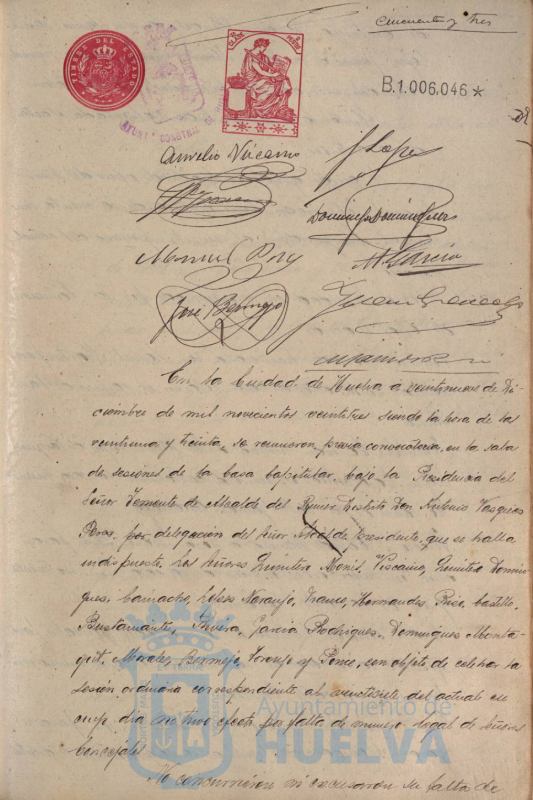 Cincuenta y tres
TIMBRE DEL ESTADO
B.1.006,046*
Aurelio Vizcaino
J Lopez
Domingo Dominguez
Manuel Pory
A. Garcia
José Bermejo
Juan Gonzalez
En la Ciudad de Huelva a veintinueve de Di-
ciembre de mil novecientos veintitres siendo la hora de las
veintiuna y treinta, se reunieron previa convocatoria, en la sala
de sesiones de la Casa Capitular, bajo la Presidencia del
Señor Teniente de Alcalde del Primer Distrito Don Antonio Vazquez
Perez, por delegación del Señor Alcalde Presidente, que se halla
indispuesto, los Señores Quintero Monís, Vizcaino, Quintero Domin-
guez, Camacho, Lopez Naranjo, Franco, Hernandez Piso, Castillo,
Bustamante, Garcia Rodriguez, Dominguez Monta-
Morales, Bermejo, Toronjo y Ponce, con objeto de celebrar la
sesión ordinaria correspondiente al veintisiete del actual en
cuyo dia no tuvo efecto por falta de número legal de Señores
Concejales
No concurrieron ni excusaron su falta de
Ayuntamiento de
HUELVA